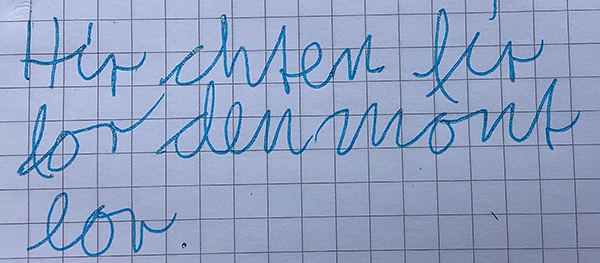 Hir chten fir
for den mont
lov.